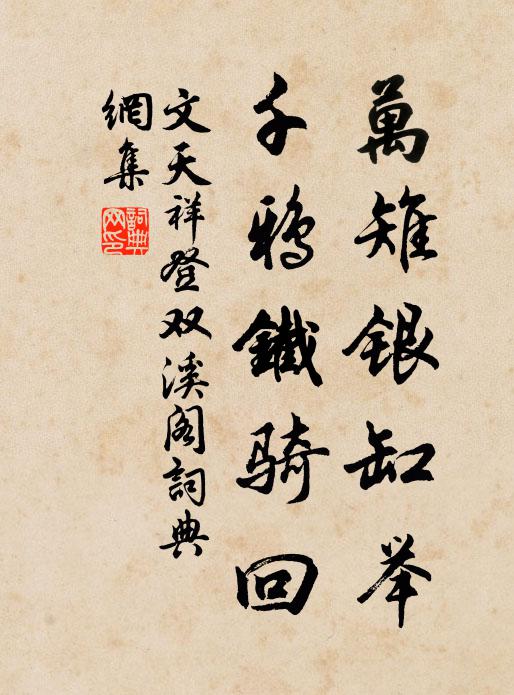 萬雉銀缸举
千鴉鐵骑回
文天祥登双溪阁詞典
網集
詞典网印